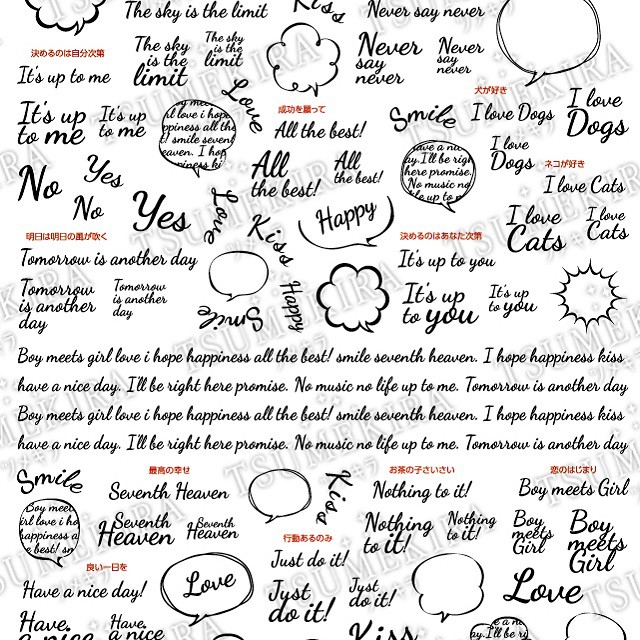 The sky is the limit
Kiss
Never say never
決めるのは自分次第
It's up to me
The sky
is the
limit
The sky
is the
limit
Never
say
never
Never
say
never
Love
犬が好き
It's up
to me
It's up
to me
成功を願って
All the best!
Smile
I love Dogs
I love
Dogs
I love
Dogs
No
Yes
No
Yes
All
the best!
All
the best!
ネコが好き
I love Cats
I love
Cats
I love
Cats
Love
Kiss
Happy
明日は明日の風が吹く
Tomorrow is another day
Tomorrow
is another
day
Tomorrow
is another
day
Smile
Happy
決めるのはあなた次第
It's up to you
It's up
to you
It's up
to you
Boy meets girl love i hope happiness all the best! smile seventh heaven. I hope happiness kiss
have a nice day. I'll be right here promise. No music no life up to me. Tomorrow is another day
Boy meets girl love i hope happiness all the best! smile seventh heaven. I hope happiness kiss
have a nice day. I'll be right here promise. No music no life up to me. Tomorrow is another day
Smile
最高の幸せ
Seventh Heaven
Seventh
Heaven
Seventh
Heaven
Kiss
お茶の子さいさい
Nothing to it!
Nothing
to it!
Nothing
to it!
恋のはじまり
Boy meets Girl
Boy
meets
Girl
Boy
meets
Girl
良い一日を
Have a nice day!
Love
行動あるのみ
Just do it!
Just
do it!
Just
do it!
Love
Have
a nice
Have
a nice
Kiss
TSUMEKIRA